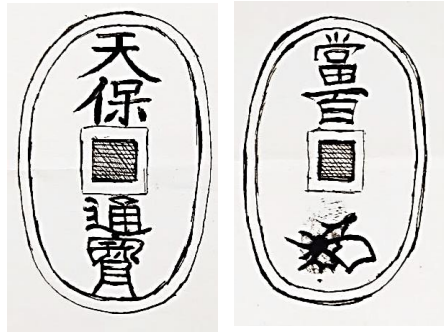 天保
通寳
當百